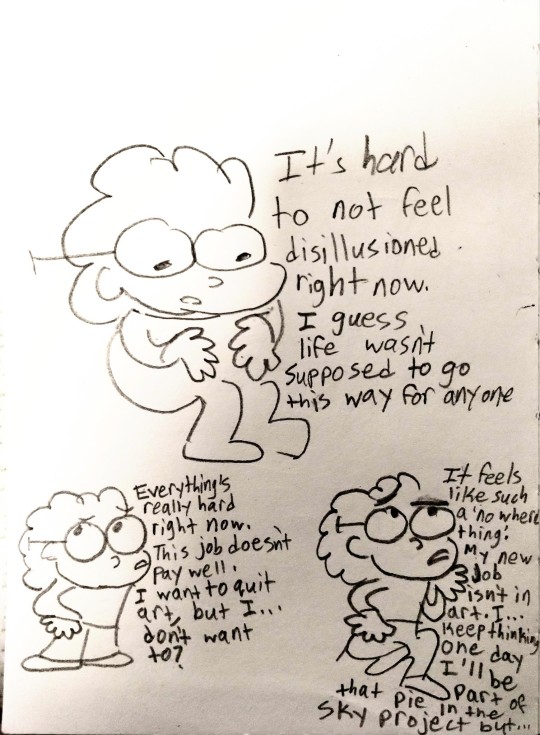 It's hard
to not feel
disillusioned.
right now.
I guess
life wasn't
supposed to go
this way for anyone
Everything's
really hard
right now.
This job doesn't
pay well.
I want to quit
art, but I...
don't want
to?
It feels
like such
a 'no where
thing'.
My new
job
isn't in
art. I...
keep thinking
one day
I'll be
part of
that pie in the
sky project but...